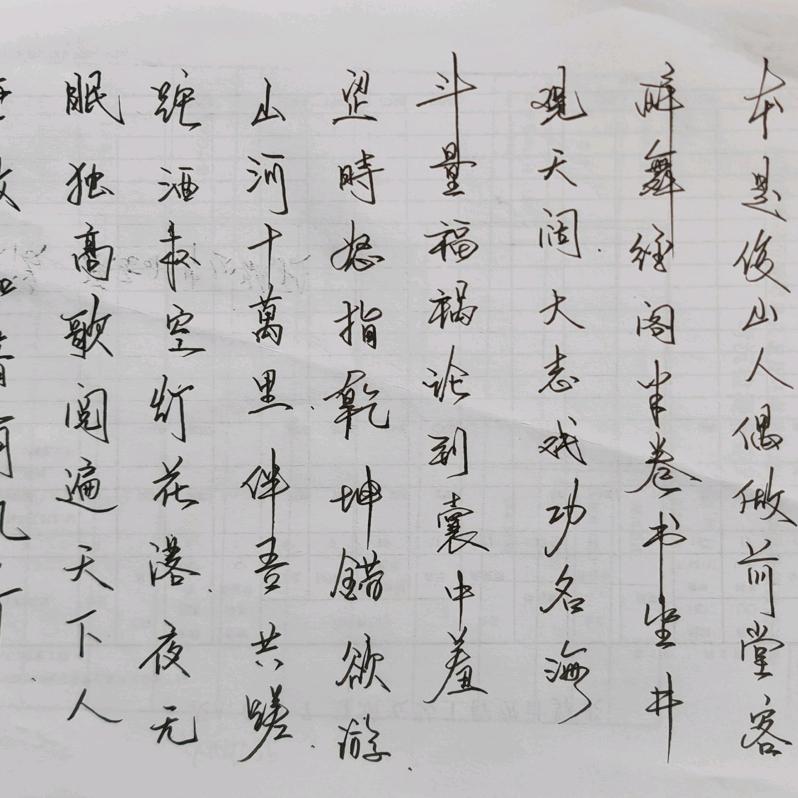 本是後山人偶做前堂客
醉舞经阁半卷书坐井
观天阔大志戏功名海
斗量福祸论到囊中羞
時怒指乾坤错欲游
山河十萬里伴吾共蹉
跎酒杯空灯花落夜无
眠独高歌阅遍天下人